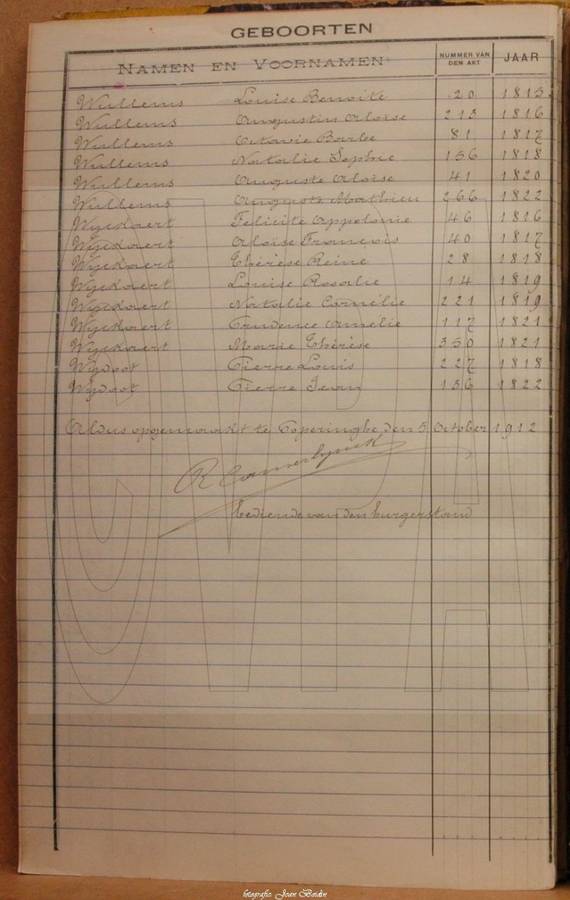 GEBOORTEN
NAMEN EN VOORNAMEN NUMMER VAN DEN AKT JAAR
Wullems Louise Benoite 20 1815
Wullems Augustin Aloïse 213 1816
Wullems Octavie Barbe 81 1817
Wullems Natalie Sophie 156 1818
Wullems Auguste Aloïse 41 1820
Wullems Auguste Mathieu 266 1822
Wyckaert Felicite Appolonie 46 1816
Wyckaert Aloïse François 40 1817
Wyckaert Thérèse Reine 28 1818
Wyckaert Louise Rosalie 14 1819
Wyckaert Natalie Cornélie 221 1819
Wyckaert Prudence Amelie 117 1821
Wyckaert Marie Thérèse 350 1821
Wydoot Pierre Louis 227 1818
Wydoot Pierre Jean 136 1822
Aldus opgemaakt te Poperinghe den 5 October 1912
bediende van den burgerstand
fotografie: Jean Bordin